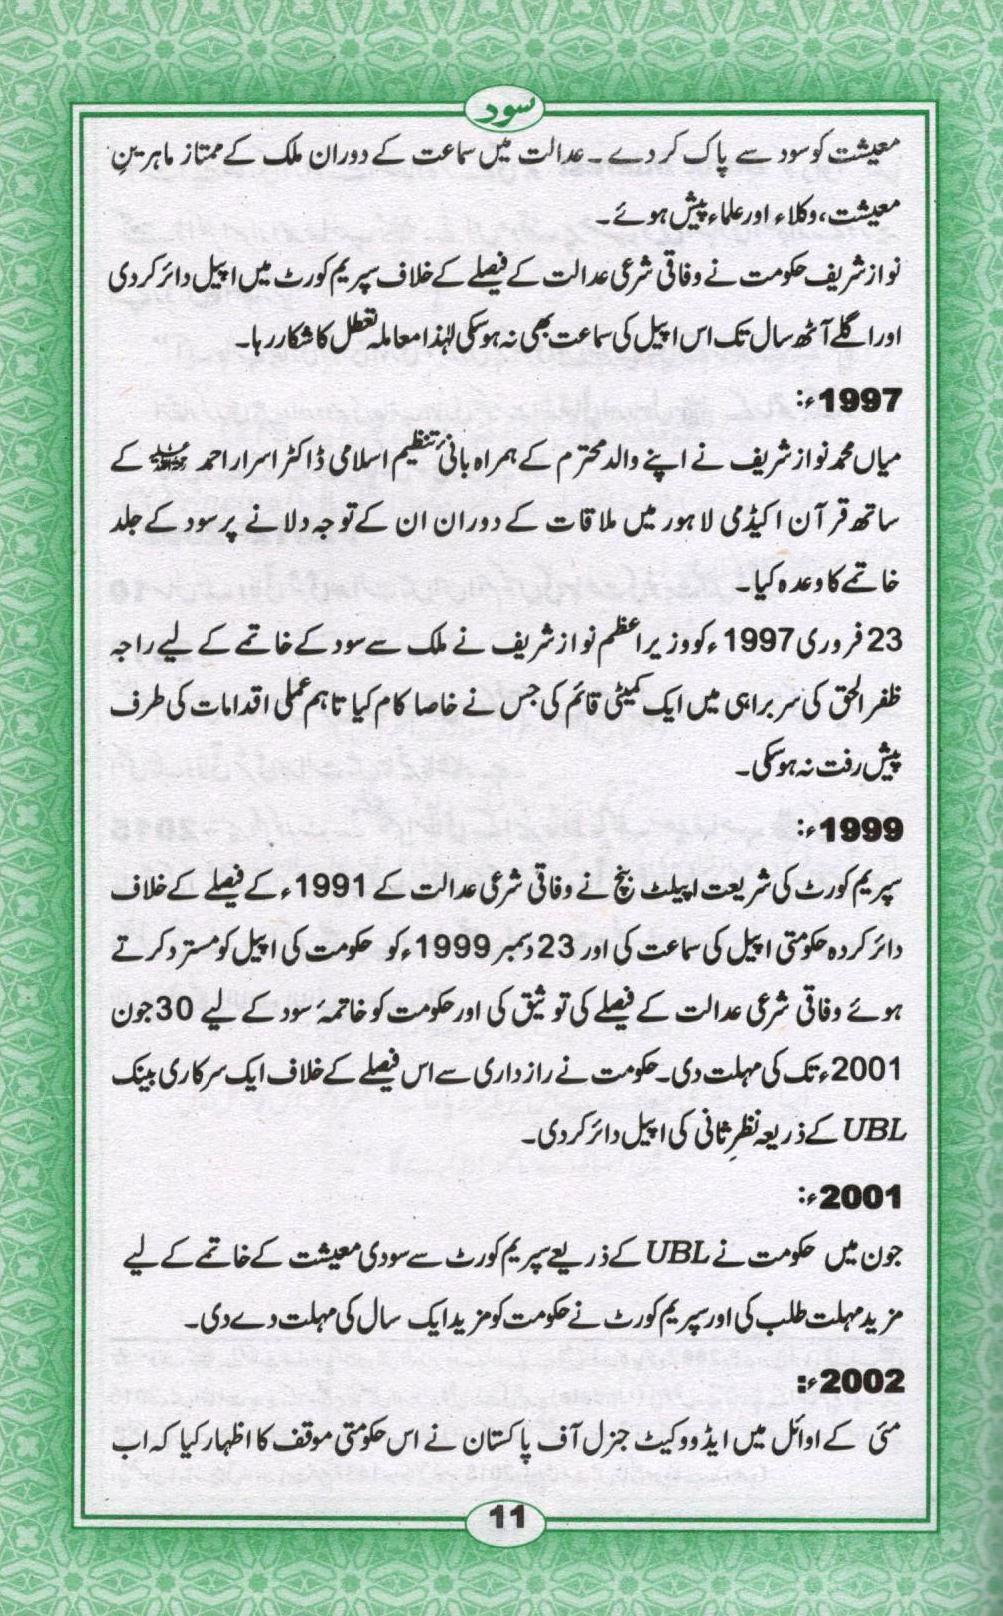 سود
معیشت کو سود سے پاک کر دے۔ عدالت میں سماعت کے دوران ملک کے ممتاز ماہرینِ
معیشت، وکلاء اور علماء پیش ہوئے۔
نواز شریف حکومت نے وفاقی شرعی عدالت کے فیصلے کے خلاف سپریم کورٹ میں اپیل دائر کر دی
اور اگلے آٹھ سال تک اس اپیل کی سماعت بھی نہ ہو سکی لہٰذا معاملہ تعطل کا شکار رہا۔
1997ء:
میاں محمد نواز شریف نے اپنے والد محترم کے ہمراہ بانیٔ تنظیم اسلامی ڈاکٹر اسرار احمد کے
ساتھ قرآن اکیڈمی لاہور میں ملاقات کے دوران ان کے توجہ دلانے پر سود کے جلد
خاتمے کا وعدہ کیا۔
23 فروری 1997ء کو وزیراعظم نواز شریف نے ملک سے سود کے خاتمے کے لیے راجہ
ظفر الحق کی سربراہی میں ایک کمیٹی قائم کی جس نے خاصا کام کیا تاہم عملی اقدامات کی طرف
پیش رفت نہ ہو سکی۔
1999ء:
سپریم کورٹ کی شریعت اپیلٹ بنچ نے وفاقی شرعی عدالت کے 1991ء کے فیصلے کے خلاف
دائر کردہ حکومتی اپیل کی سماعت کی اور 23 دسمبر 1999ء کو حکومت کی اپیل کو مسترد کرتے
ہوئے وفاقی شرعی عدالت کے فیصلے کی توثیق کی اور حکومت کو خاتمۂ سود کے لیے 30 جون
2001ء تک کی مہلت دی۔ حکومت نے رازداری سے اس فیصلے کے خلاف ایک سرکاری بینک
UBL کے ذریعہ نظرِ ثانی کی اپیل دائر کر دی۔
2001ء:
جون میں حکومت نے UBL کے ذریعے سپریم کورٹ سے سودی معیشت کے خاتمے کے لیے
مزید مہلت طلب کی اور سپریم کورٹ نے حکومت کو مزید ایک سال کی مہلت دے دی۔
2002ء:
مئی کے اوائل میں ایڈووکیٹ جنرل آف پاکستان نے اس حکومتی موقف کا اظہار کیا کہ اب
11